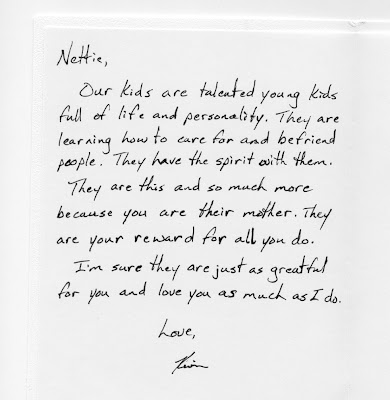 Nettie,
Our kids are talented young kids
full of life and personality. They are
learning how to care for and befriend
people. They have the spirit with them.
They are this and so much more
because you are their mother. They
are your reward for all you do.
I'm sure they are just as greatful
for you and love you as much as I do.
Love,
Kevin